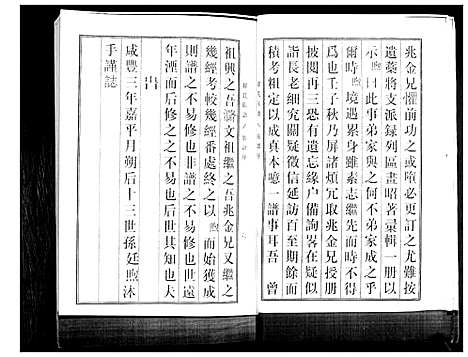 兆金兄懼前功之或墮必更訂之尤難採
遺藁將支派録列區畫昭著彙輯一册以
示煦曰此事弟家與之何不弟家成之乎
爾時煦境遇累身雖素志繼先而時不得
爲也壬子秋乃屏諸煩冗取兆金兄授册
披閱再三恐有遺忘緣户備詢畧在疑似
長老細究關疑徵信延訪百至期餘而
積考粗定以成真本噫一譜事耳吾曾
祖興之吾游文祖繼之吾兆金兄又繼之
幾經考較幾經番處終之以煦而始獲成
則譜之不易修也世遠
年湮而后修之之不易也后世其知也夫
旹
咸豐三年嘉平月朔后十三世孫廷煦沐
手謹誌